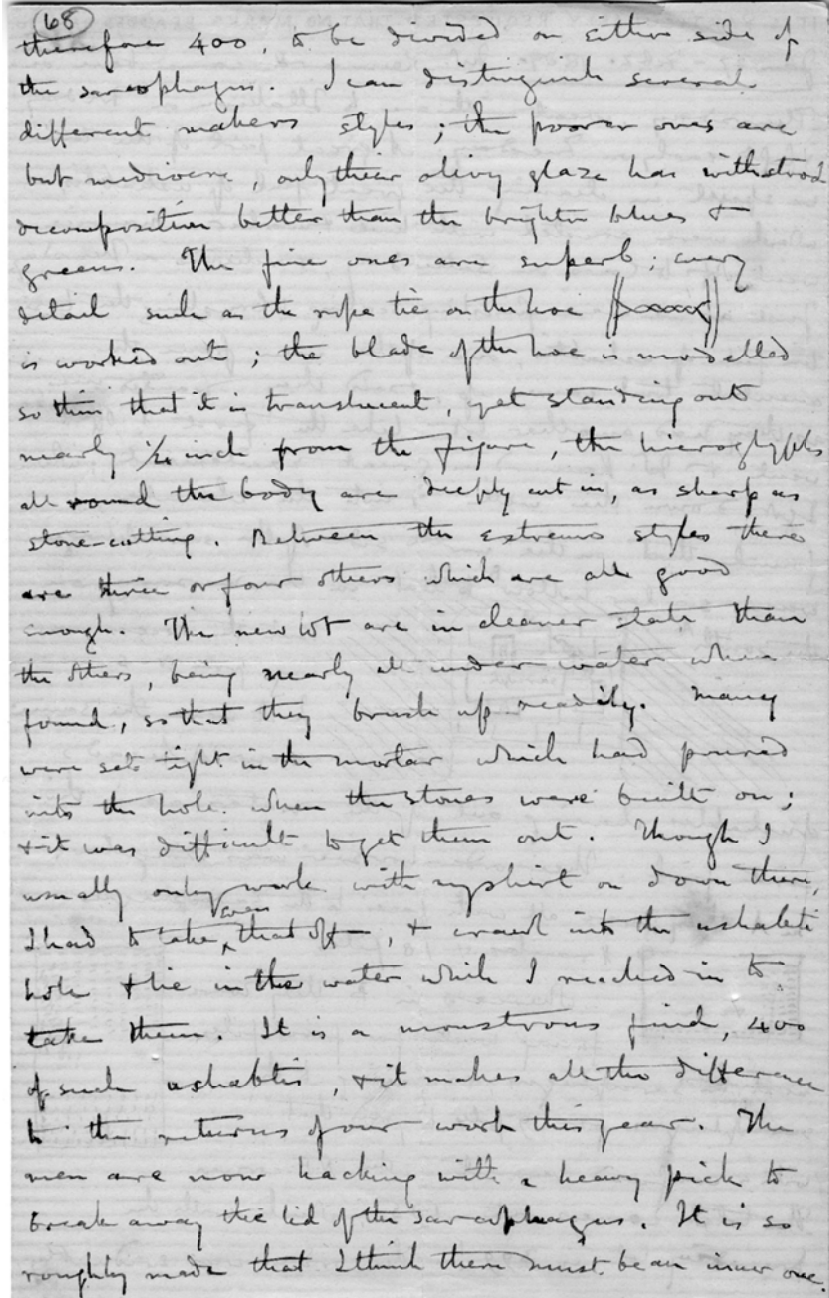 68
therefore 400, to be divided on either side of
the sarcophagus. I can distinguish several
different makers styles; the poorer ones are
but mediocre, only their olivy glaze has withstood
decomposition better than the brighter blues &
greens. The fine ones are superb; every
detail such as the rope tie on the hoe
is worked out; the blade of the hoe is modelled
so thin that it is translucent, yet standing out
nearly inch from the figure, the hieroglyphs
all round the body are deeply cut in, as sharp as
stone-cutting. Between the extreme styles there
are three or four others which are all good
enough. The new lot are in cleaner state than
the others, being nearly all under water when
found, so that they brush up readily. Many
were set tight in the mortar which had poured
into the hole when the stones were built on;
& it was difficult to get them out. Though I
usually only work with my shirt on down there,
I had to take even that off, & crawl into the ushabti
hole & lie in the water while I reached in to
take them. It is a monstrous find, 400
of such ushabtis, & it makes all the difference
to the returns of our work this year. The
men are now hacking with a heavy pick to
break away the lid of the sarcophagus. It is so
roughly made that I think there must be an inner one.